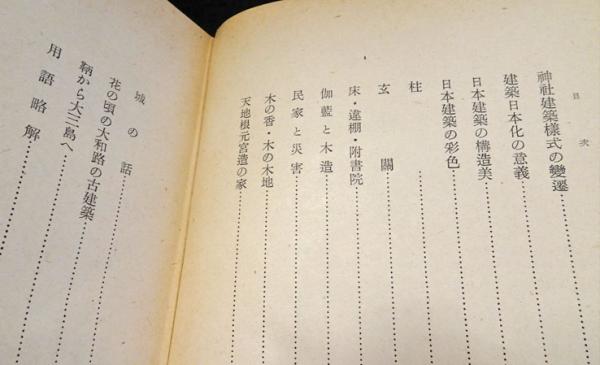 目次
神社建築樣式の變遷
建築日本化の意義
日本建築の構造美
日本建築の彩色
柱
玄關
床・違棚・附書院
伽藍と木造
民家と災害
木の香・木の木地
天地根元宮造の家
城の話
花の頃の大和路の古建築
鞆から大三島へ
用語略解